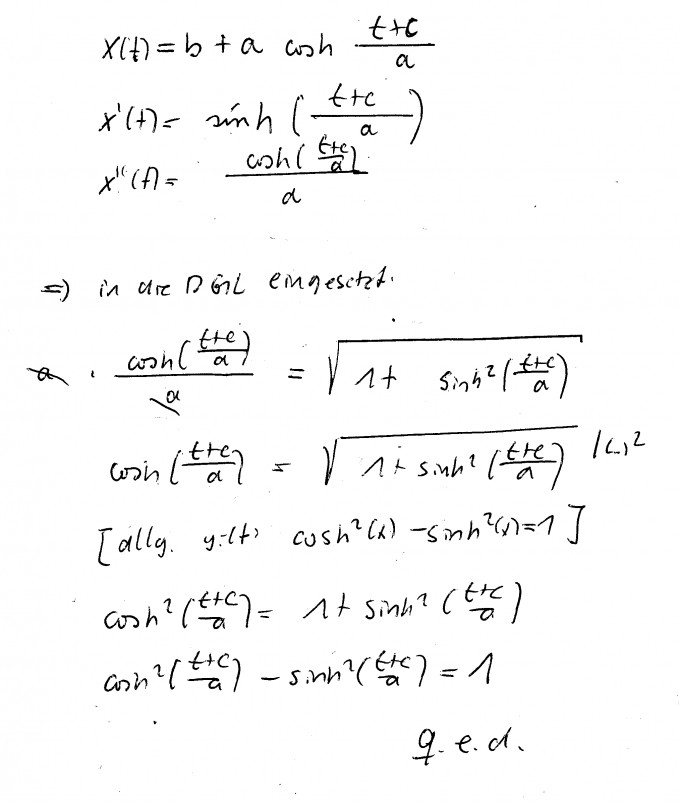 x(t) = b + a cosh (t+c)/a
x'(t) = sinh ((t+c)/a)
x''(t) = cosh((t+c)/a) / a
=> in die DGL eingesetzt.
a · cosh((t+c)/a) / a = √(1 + sinh²((t+c)/a))
cosh((t+c)/a) = √(1 + sinh²((t+c)/a)) |(..)²
[allg. gilt: cosh²(x) - sinh²(x) = 1]
cosh²((t+c)/a) = 1 + sinh²((t+c)/a)
cosh²((t+c)/a) - sinh²((t+c)/a) = 1
q.e.d.